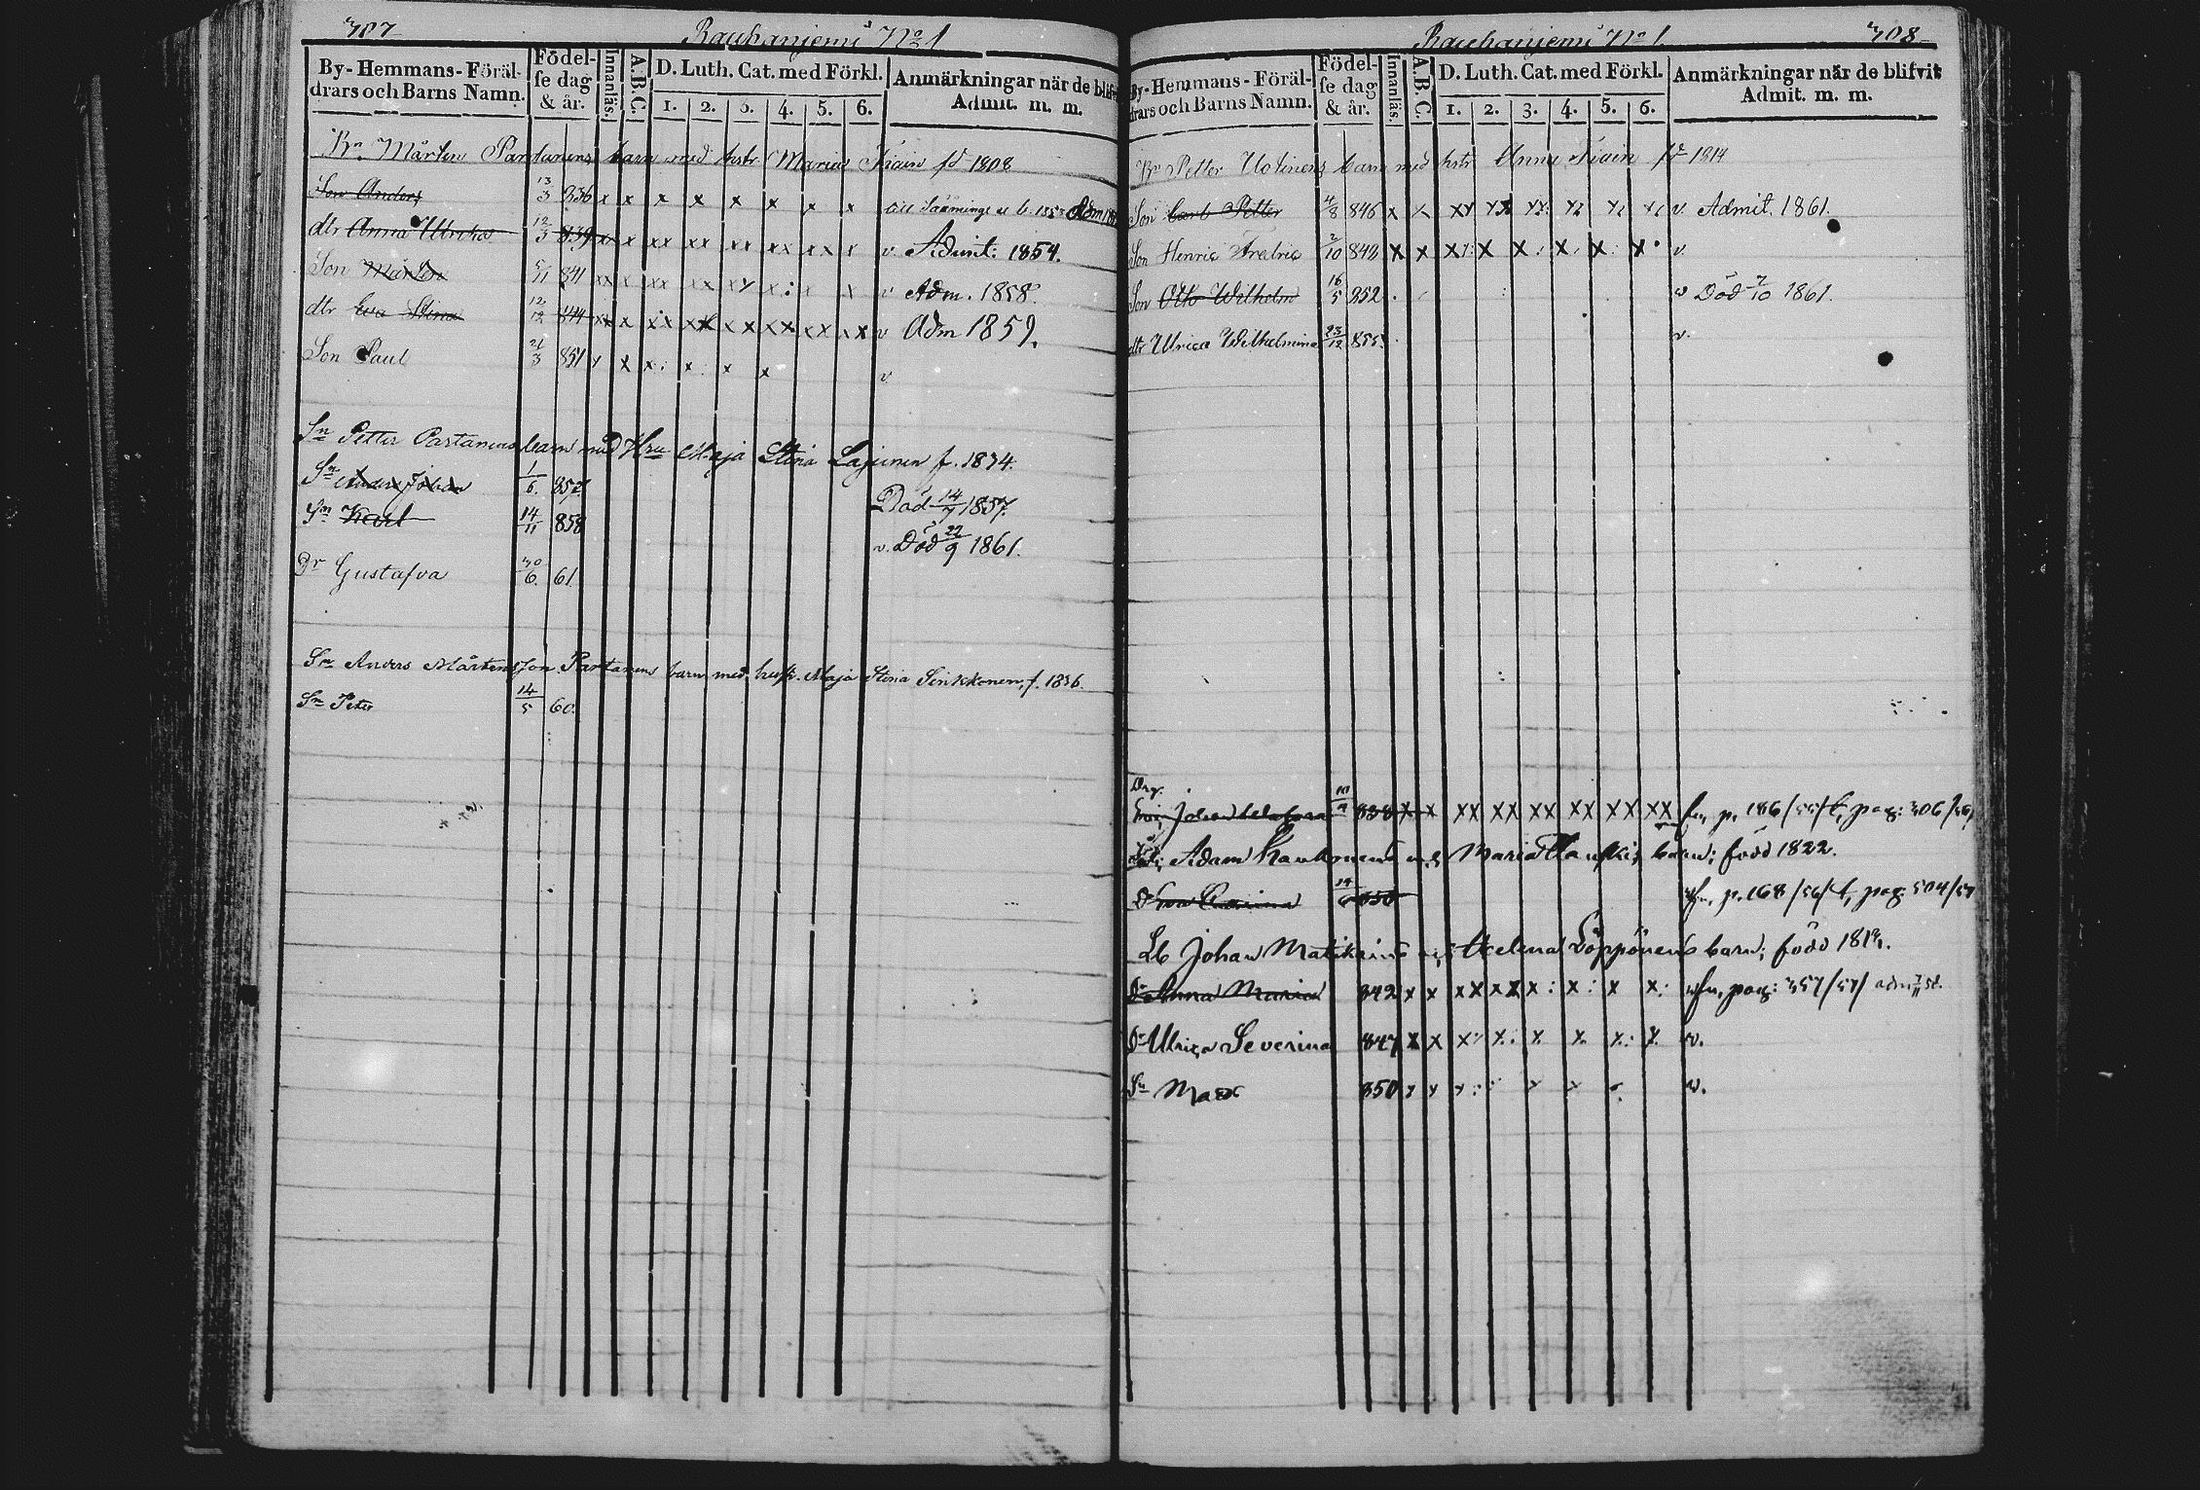 307
Rauhaniemi No 1
By-Hemmans-Föräl-
drars och Barns Namn.
Födel-
se dag
& år.
Innanläs.
A.B.C.
D. Luth. Cat. med Förkl.
1. 2. 3. 4. 5. 6.
Anmärkningar när de blifvit
Admit. m. m.
Bn Mårten Partanens barn med hstr Maria fd 1808
Son Anders 13/3 836 x x x x x x x x
dtr Anna Ulrika 12/3 839 x x xx xx xx xx x x v Admit: 1854.
Son Mårten 5/11 841 xx x xx xx xy x: x x v Adm. 1858.
dtr Eva Stina 12/12 844 xx x xx xx xx xx xx xx v Adm 1859.
Son Paul 21/3 851 x x x: x: x x v
Sn Petter Partanens barn med Hru Maja Stina Lajunen f. 1834.
Sn Anders Johan 1/6. 857 Död 14/7 1857.
Sn Karl 14/11 858 v. Död 22/9 1861.
Dr Gustafva 30/6. 61.
Sn Anders Mårtensson Partanens barn med hust. Maja Stina Sinkkonen, f. 1836.
Sn Peter 14/5 60.
Rauhaniemi No 1.
308
By-Hemmans-Föräl-
drars och Barns Namn.
Födel-
se dag
& år.
Innanläs.
A.B.C.
D. Luth. Cat. med Förkl.
1. 2. 3. 4. 5. 6.
Anmärkningar när de blifvit
Admit. m. m.
Bn Petter Uotinens barn med hstr Anna fd 1814
Son Petter 4/8 846 v. Admit. 1861.
Son Henric Fredric 2/10 849 x x x: x x: x: x: x. v
Son Otto Wilhelm 16/5 852 v Död 7/10 1861.
dtr Ulrica Wilhelmina 23/12 855. v.
Drg.
Johan 838 x x xx xx xx xx xx xx fr, p. 186/55/t, pag: 306/56/
Adam Kaukonens Maria barn; född 1822.
Dr Eva 850 p. 168/56/t, pag: 504/57
Lb Johan Matikains Helena Löppönens barn;
Dr Anna Maria 842 x x xx xx x: x: x x: pag: 357/57/
Dr Ulrica Severina 847 x x x: x: x x x: x v.
Sn Max 850 x x v.